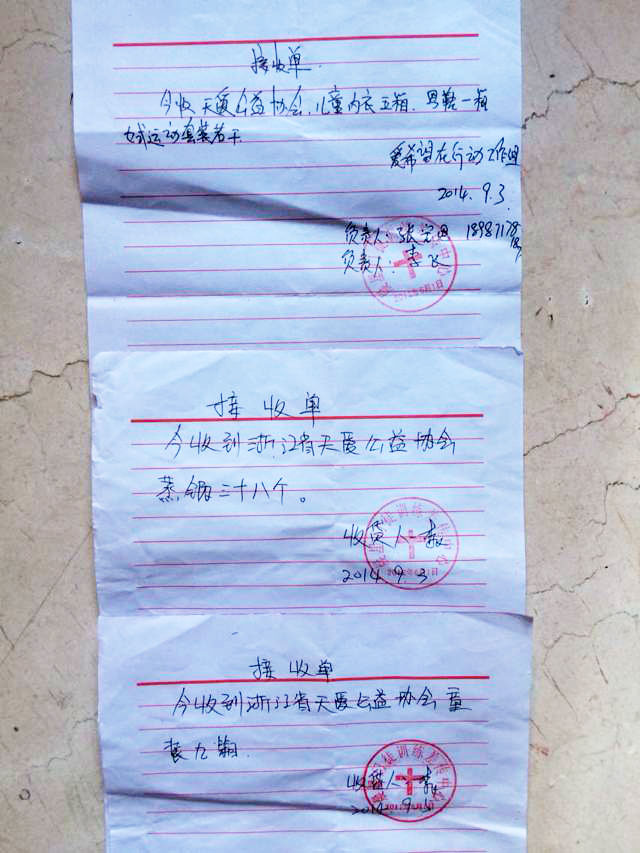 接收单
今收天爱公益协会，儿童内衣五箱，男鞋一箱
女式运动套装若干
爱希望在行动工作组
2014.9.3.
负责人：
负责人：李飞
接收单
今收到浙江省天爱公益协会
蒸锅三十八个。
收货人
2014.9.3
接收单
今收到浙江省天爱公益协会童
装九箱
收货人
2014.9.3